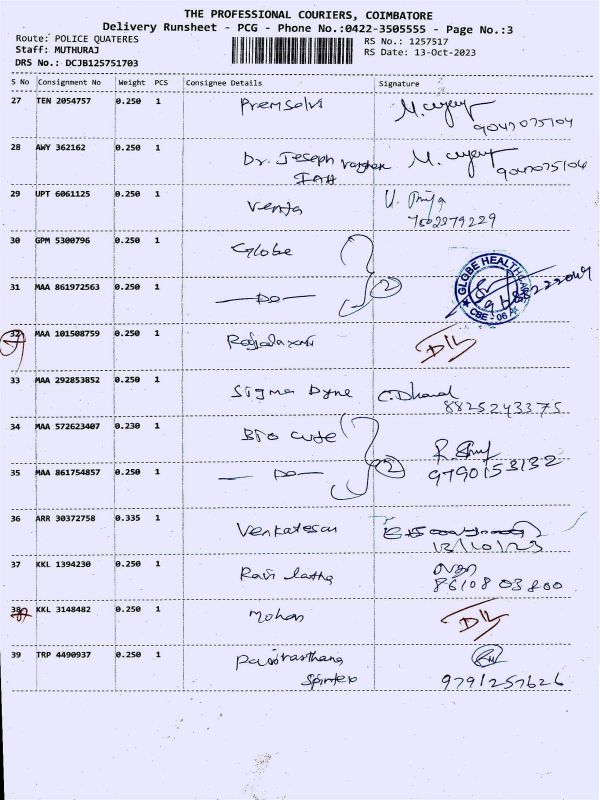 THE PROFESSIONAL COURIERS, COIMBATORE
Delivery Runsheet - PCG - Phone No.:0422-3505555 - Page No.:3
Route: POLICE QUATERES
RS No.: 1257517
Staff: MUTHURAJ
RS Date: 13-Oct-2023
DRS No.: DCJB125751703
S No Consignment No Weight PCS Consignee Details Signature
27 TEN 2054757 0.250 1 Premselvi
9047075104
28 AWY 362162 0.250 1 Dr. Jeseph
9047075104
29 UPT 6061125 0.250 1
7502979229
30 GPM 5300796 0.250 1 Globe
2
GLOBE HEALTHCARE
CBE - 06
31 MAA 861972563 0.250 1 — Do —
32 MAA 101508759 0.250 1 D/L
33 MAA 292853852 0.250 1 Sigma Dyne
8825243375
34 MAA 572623407 0.230 1 Bio cute
2
9790153132
35 MAA 861754857 0.250 1 — Do —
36 ARR 30372758 0.335 1 Venkatesan
13/10/23
37 KKL 1394230 0.250 1 Ravi latha
8610803800
38 KKL 3148482 0.250 1 Mohan D/L
39 TRP 4490937 0.250 1
9791257626